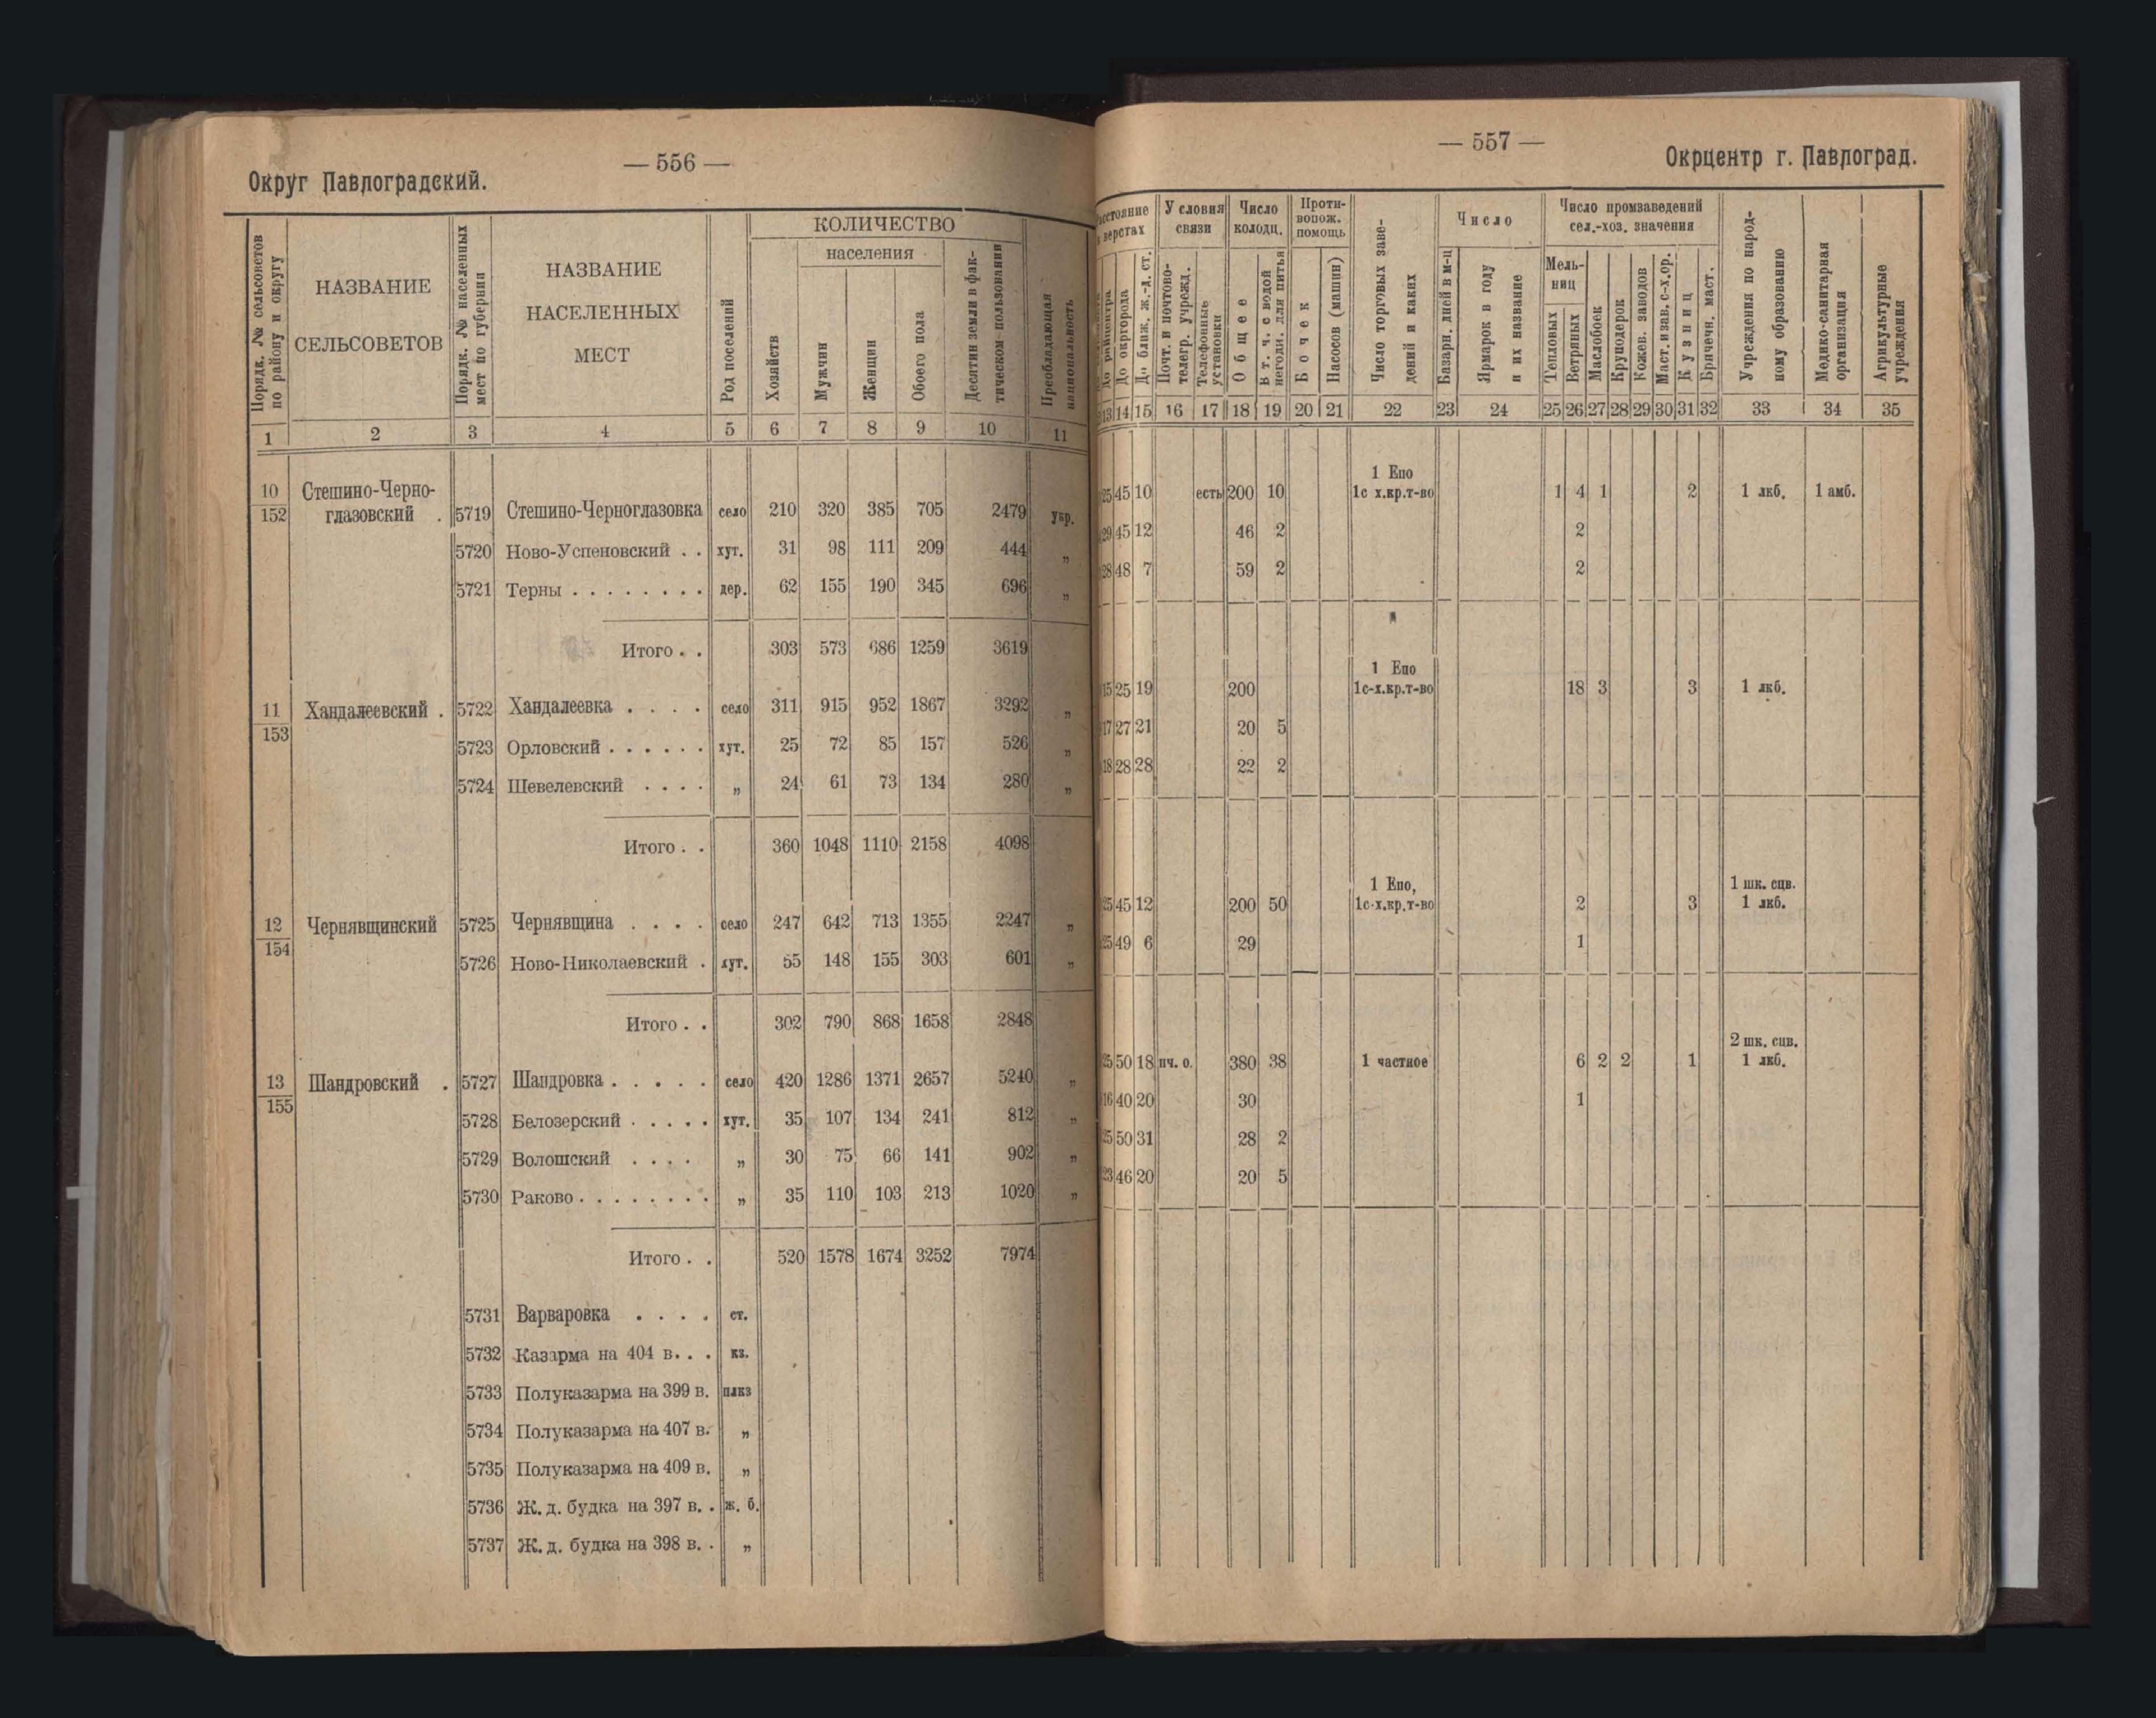 — 556 —
Округ Павлоградский.
Порядк. № сельсоветов по району и округу
НАЗВАНИЕ СЕЛЬСОВЕТОВ
Порядк. № населенных мест по губернии
НАЗВАНИЕ НАСЕЛЕННЫХ МЕСТ
Род поселений
КОЛИЧЕСТВО
населения
Хозяйств
Мужчин
Женщин
Обоего пола
Десятин земли в фактическом пользовании
Преобладающая национальность
1 2 3 4 5 6 7 8 9 10 11
10 Стешино-Черно-
152 глазовский . 5719 Стешино-Черноглазовка село 210 320 385 705 2479 укр.
5720 Ново-Успеновский . . хут. 31 98 111 209 444 „
5721 Терны . . . . . . . . дер. 62 155 190 345 696 „
Итого . . 303 573 686 1259 3619
11 Хандалеевский . 5722 Хандалеевка . . . . село 311 915 952 1867 3292 „
153
5723 Орловский . . . . . . хут. 25 72 85 157 526 „
5724 Шевелевский . . . . „ 24 61 73 134 280 „
Итого . . 360 1048 1110 2158 4098
12 Чернявщинский 5725 Чернявщина . . . . село 247 642 713 1355 2247 „
154
5726 Ново-Николаевский . хут. 55 148 155 303 601 „
Итого . . 302 790 868 1658 2848
13 Шандровский . 5727 Шандровка . . . . . село 420 1286 1371 2657 5240 „
155
5728 Белозерский . . . . . хут. 35 107 134 241 812 „
5729 Волошский . . . . „ 30 75 66 141 902 „
5730 Раково . . . . . . . . „ 35 110 103 213 1020 „
Итого . . 520 1578 1674 3252 7974
5731 Варваровка . . . . ст.
5732 Казарма на 404 в. . . кз.
5733 Полуказарма на 399 в. плкз
5734 Полуказарма на 407 в. „
5735 Полуказарма на 409 в. „
5736 Ж. д. будка на 397 в. . ж. б.
5737 Ж. д. будка на 398 в. . „
— 557 —
Окрцентр г. Павлоград.
верстах
До райцентра
До окргорода
До ближ. ж.-д. ст.
Условия связи
Почт. и почтово-телегр. учрежд.
Телефонные установки
Число колодц.
Общее
В т. ч. с водой негодн. для питья
Проти-вопож. помощь
Бочек
Насосов (машин)
Число торговых заве-дений и каких
Число
Базарн. дней в м-ц
Ярмарок в году и их название
Число промзаведений сел.-хоз. значения
Мель-ниц
Тепловых
Ветряных
Маслобоек
Круподерок
Кожев. заводов
Маст. и зав. с-х. ор.
Кузниц
Брячечн. маст.
Учреждения по народ-ному образованию
Медико-санитарная организация
Агрикультурные учреждения
13 14 15 16 17 18 19 20 21 22 23 24 25 26 27 28 29 30 31 32 33 34 35
1 Епо
25 45 10 есть 200 10 1с х.кр.т-во 1 4 1 2 1 лкб. 1 амб.
29 45 12 46 2 2
28 48 7 59 2 2
1 Епо
15 25 19 200 1с-х.кр.т-во 18 3 3 1 лкб.
17 27 21 20 5
18 28 28 22 2
1 Епо, 1 шк. сцв.
25 45 12 200 50 1с-х.кр.т-во 2 3 1 лкб.
25 49 6 29 1
2 шк. сцв.
25 50 18 пч. о. 380 38 1 частное 6 2 2 1 1 лкб.
16 40 20 30 1
25 50 31 28 2
23 46 20 20 5